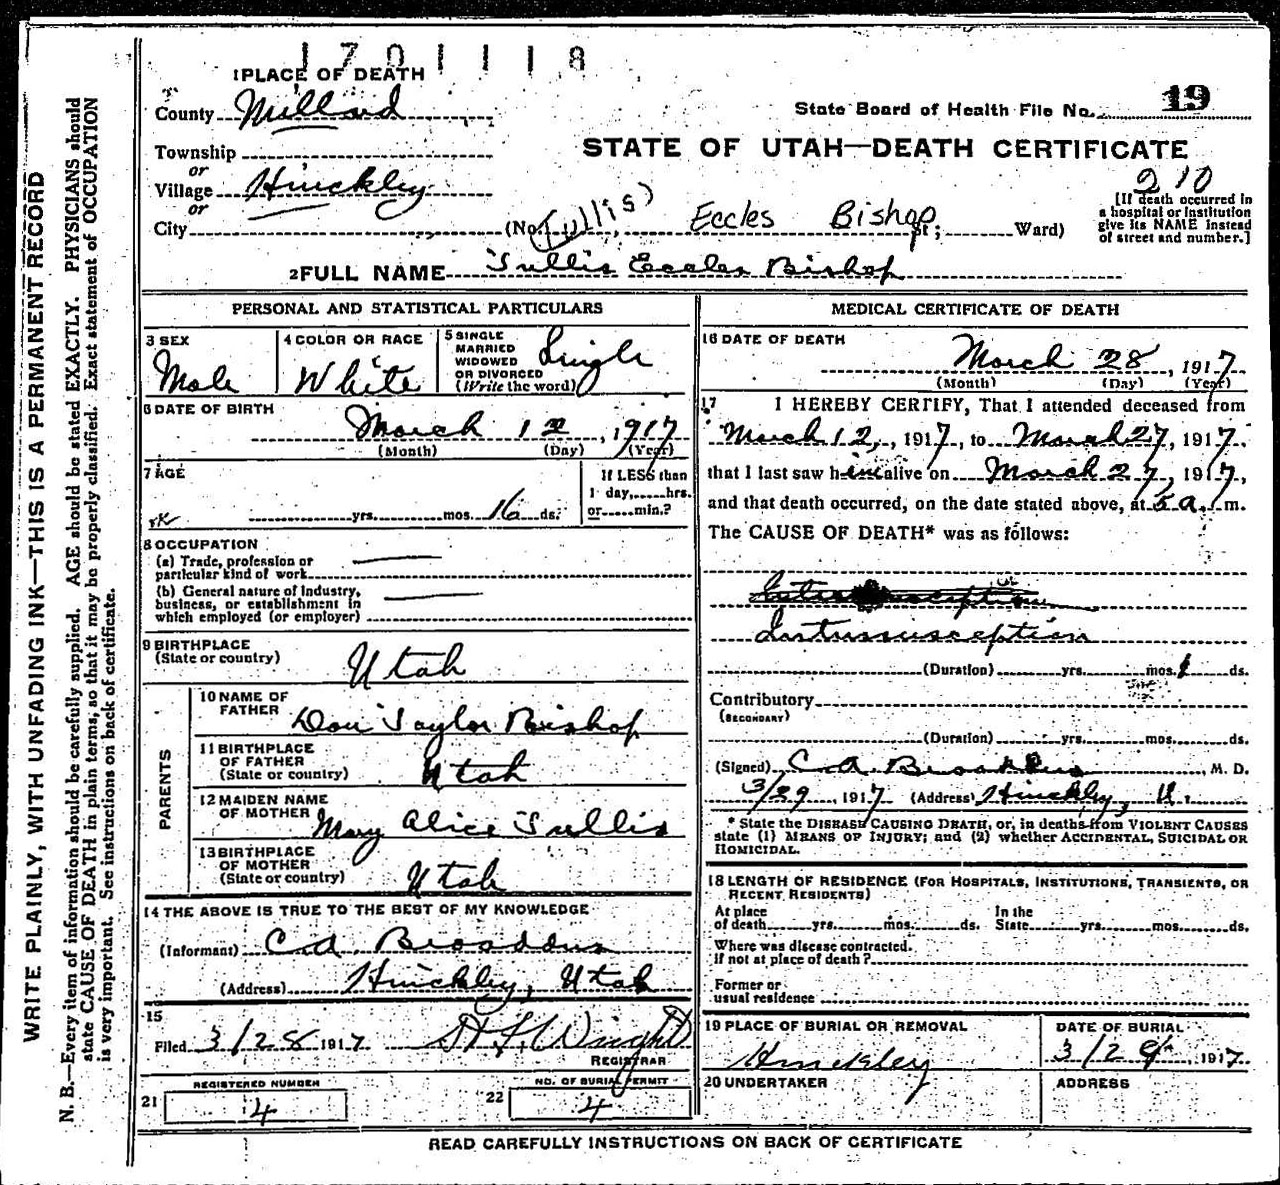 1701118
1 PLACE OF DEATH
County Millard
State Board of Health File No. 19
Township
or
Village Hinckley
or
City
STATE OF UTAH—DEATH CERTIFICATE
210
[If death occurred in
a hospital or institution
give its NAME instead
of street and number.]
(No. (Tullis) Eccles Bishop St; Ward)
2 FULL NAME Tullis Eccles Bishop
PERSONAL AND STATISTICAL PARTICULARS
3 SEX
Male
4 COLOR OR RACE
White
5 SINGLE
MARRIED
WIDOWED
OR DIVORCED
(Write the word)
Single
6 DATE OF BIRTH
March 12, 1917
(Month) (Day) (Year)
7 AGE
yrs. mos. 16 ds.
If LESS than
1 day, hrs.
or min.?
8 OCCUPATION
(a) Trade, profession or
particular kind of work
(b) General nature of Industry,
business, or establishment in
which employed (or employer)
9 BIRTHPLACE
(State or country)
Utah
PARENTS
10 NAME OF
FATHER
Don Taylor Bishop
11 BIRTHPLACE
OF FATHER
(State or country)
Utah
12 MAIDEN NAME
OF MOTHER
Mary Alice Tullis
13 BIRTHPLACE
OF MOTHER
(State or country)
Utah
14 THE ABOVE IS TRUE TO THE BEST OF MY KNOWLEDGE
(Informant) C A Broaddus
(Address) Hinckley, Utah
15
Filed 3/28 1917
REGISTRAR
21
REGISTERED NUMBER
4
22
NO. OF BURIAL PERMIT
4
MEDICAL CERTIFICATE OF DEATH
16 DATE OF DEATH
March 28, 1917
(Month) (Day) (Year)
17 I HEREBY CERTIFY, That I attended deceased from
March 12, 1917, to March 27, 1917.
that I last saw him alive on March 27, 1917,
and that death occurred, on the date stated above, at 5 a. m.
The CAUSE OF DEATH* was as follows:
Intussusception
(Duration) yrs. mos. 1 ds.
Contributory
(SECONDARY)
(Duration) yrs. mos. ds.
(Signed) C A Broaddus, M. D.
3/29, 1917 (Address) Hinckley, U.
* State the DISEASE CAUSING DEATH, or, in deaths from VIOLENT CAUSES
state (1) MEANS OF INJURY; and (2) whether ACCIDENTAL, SUICIDAL OR
HOMICIDAL.
18 LENGTH OF RESIDENCE (FOR HOSPITALS, INSTITUTIONS, TRANSIENTS, OR
RECENT RESIDENTS)
At place
of death yrs. mos. ds.
In the
State yrs. mos. ds.
Where was disease contracted.
if not at place of death?
Former or
usual residence
19 PLACE OF BURIAL OR REMOVAL
Hinckley
DATE OF BURIAL
3/29, 1917.
20 UNDERTAKER
ADDRESS
READ CAREFULLY INSTRUCTIONS ON BACK OF CERTIFICATE
WRITE PLAINLY, WITH UNFADING INK—THIS IS A PERMANENT RECORD
N. B.—Every item of information should be carefully supplied. AGE should be stated EXACTLY. PHYSICIANS should
state CAUSE OF DEATH in plain terms, so that it may be properly classified. Exact statement of OCCUPATION
is very important. See instructions on back of certificate.